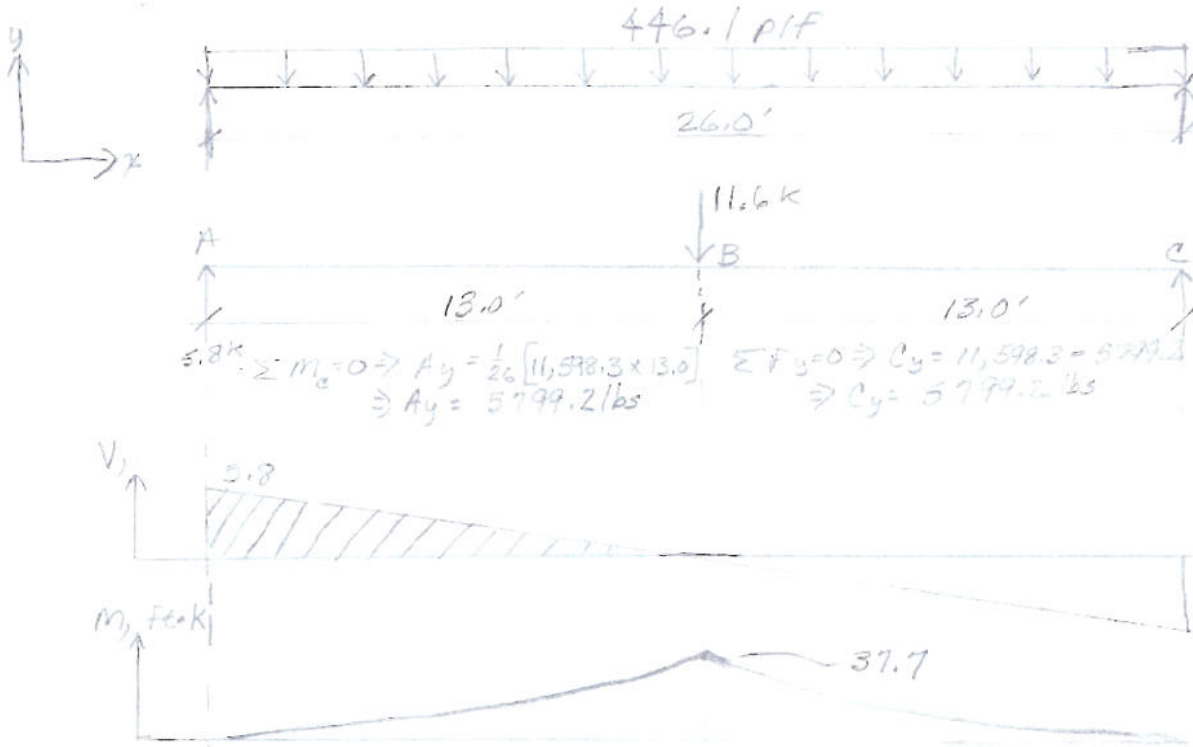 446.1 plf
y
26.0'
x
11.6 k
A
B
C
13.0'
13.0'
5.8k
ΣMc=0 ⇒ Ay = 1/26 [11,598.3 x 13.0]
⇒ Ay = 5799.2 lbs
ΣFy=0 ⇒ Cy = 11,598.3 - 5799.2
⇒ Cy = 5799.2 lbs
V,
5.8
M, ft-k
37.7